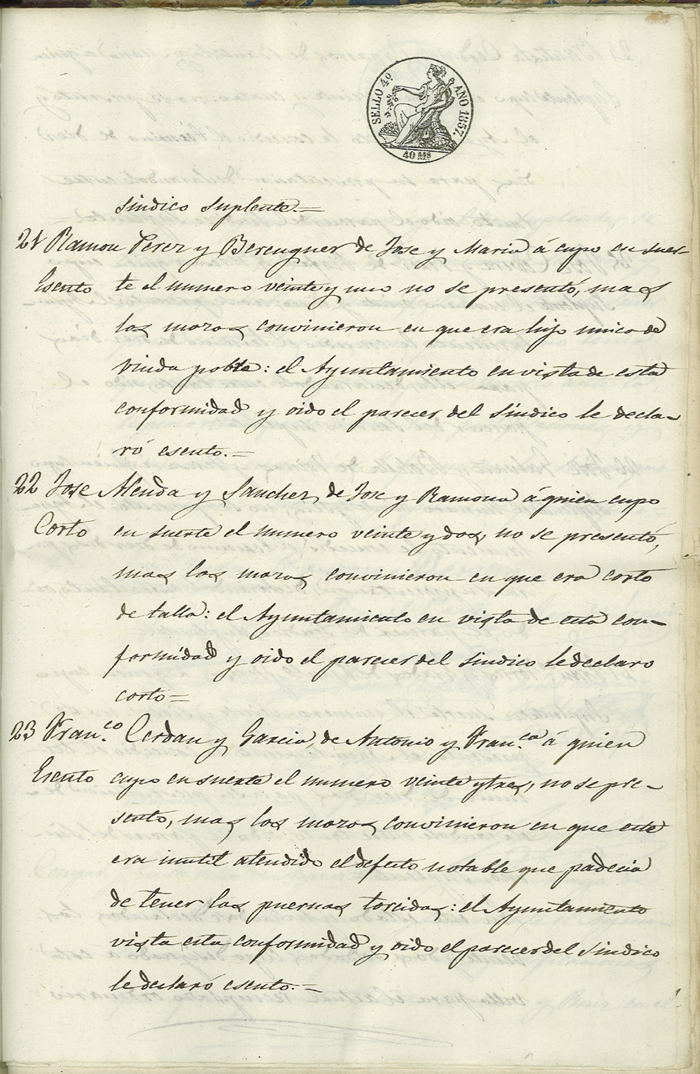 SELLO 4º AÑO 1857.
40 Ms
sindico suplente.=
21 Ramon Perez y Berenguer de Jose y Maria á cupo en suer-
Esento te el numero veinte y uno no se presentó, mas
los mozos convinieron en que era hijo unico de
viuda pobre: el Ayuntamiento en vista de esta
conformidad y oido el parecer del Síndico le decla-
ró esento.=
22 Jose Alenda y Sanchez, de Jose y Ramona á quien cupo
Corto en suerte el numero veinte y dos, no se presentó,
mas los mozos convinieron en que era corto
de talla: el Ayuntamiento en vista de esta con-
formidad y oido el parecer del sindico le declaro
corto=
23 Fran.co Cerdan y Garcia, de Antonio y Fran.ca á quien
Esento cupo en suerte el numero veinte y tres, no se pre-
sento, mas los mozos convinieron en que este
era inutil atendido el defecto notable que padecia
de tener las piernas torcidas: el Ayuntamiento
vista esta conformidad y oido el parecer del Sindico
le declaró esento.=